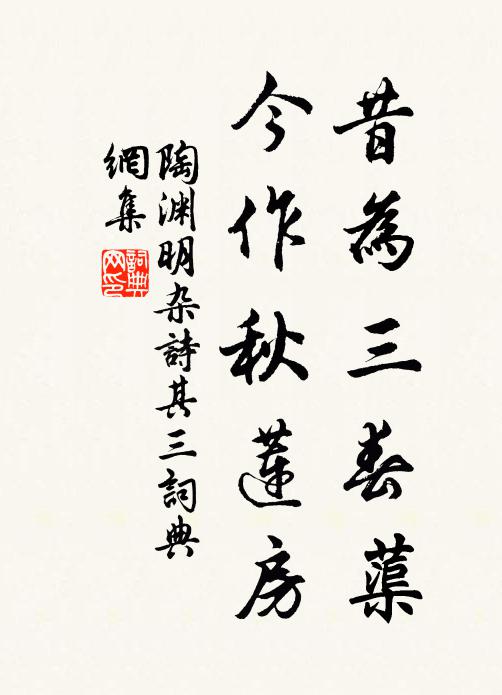 昔為三春蕖
今作秋蓮房
陶渊明杂詩其三詞典
網集
詞典
网印